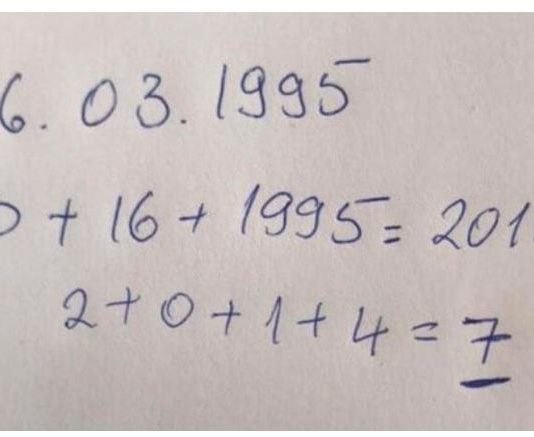 6. 03. 1995
+ 16 + 1995 = 201
2 + 0 + 1 + 4 = 7